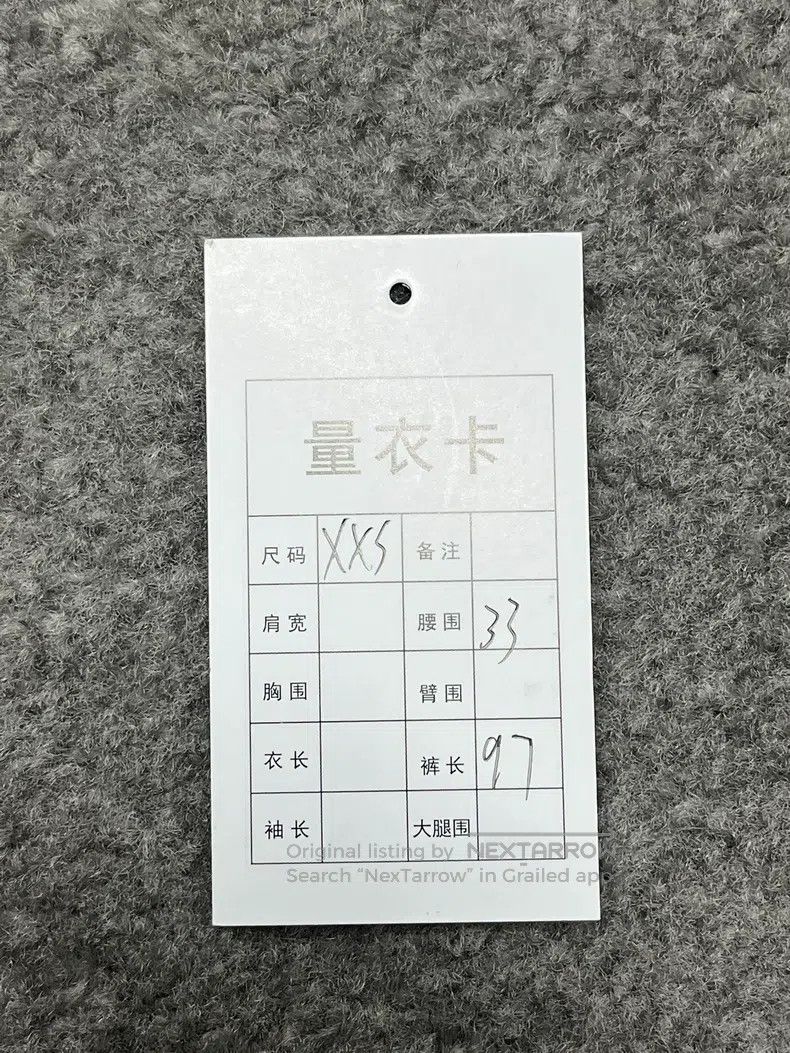 量衣卡
尺码 XXS 备注
肩宽 腰围 33
胸围 臂围
衣长 裤长 97
袖长 大腿围
Original listing by NEXTARROW
Search “NexTarrow” in Grailed app